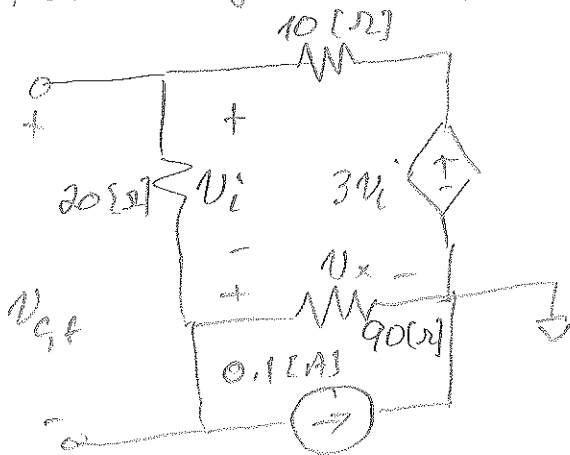 10 [Ω]
+
+
20 [Ω]
v_i
3v_i
+
-
-
+
v_x
-
90 [Ω]
0.1 [A]
-